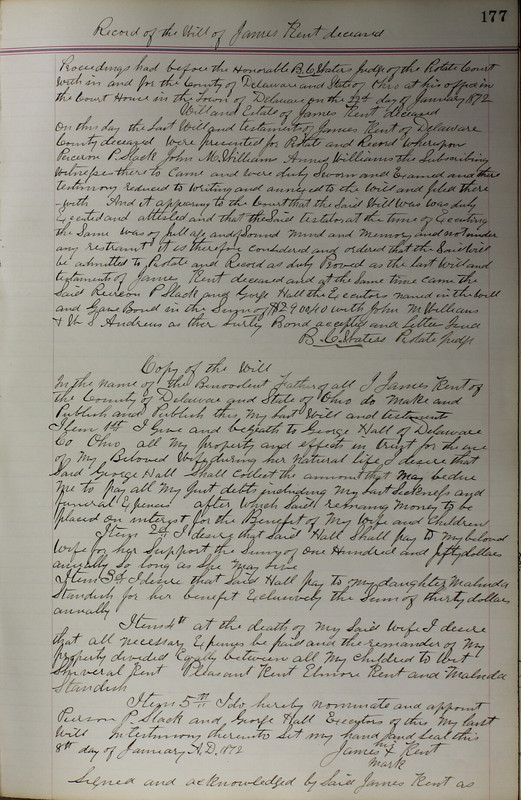 177
Record of the Will of James Kent deceased
Proceedings had before the Honorable B. C. Waters Judge of the Probate Court
within and for the County of Delaware and State of Ohio at his office in
the Court House in the Town of Delaware on the 22d day of January 1872
Will and Estate of James Kent deceased
On this day the Last Will and testament of James Kent of Delaware
County deceased were presented for Probate and Record Whereupon
Peirson P. Slack John M. William Annie Williams the Subscribing
Witnesse there to Came and were duly Sworn and Examed and there
testimony reduced to Writing and annexed to the Will and filed there
-with And it appearing to the Court that the Said Will Was was duly
Executed and attested and that the Said testator at the time of Executing
the Same was of full age and Sound Mind and Memory and not under
any restraint it is therefore Considered and ordered that the Said Will
be admitted to Probate and Record as duly Proved as the last Will and
testament of James Kent deceased and at the Same time Came the
Said Peirson P Slack and George Hall the Executors named in the Will
and Gave Bond in the Sum of with John M Williams
& S Andrews as their Surity Bond accepted and Letter Issued
B. C. Waters Probate Judge
Copy of the Will
In the name of the Benevolent Father of all I James Kent of
the County of Delaware and State of Ohio do Make and
Publish and Publish this My Last Will and testament
Item 1st I Give and beqeath to George Hall of Delaware
Co Ohio, all my property and effects in trust for the use
of my Beloved Wife during her natural life I desire that
Said George Hall Shall Collect the amount that May be due
Me to pay all My Just debts including My last Sickness and
funeral Expences after Which Said remaing Money to be
placed on interest for the Benefit of My Wife and Children
Item 2d I desire that Said Hall Shall pay to My beloved
Wife for her Support the Sum of One Hundred and fifty dollars
anually So long as She May live
Item 3d I desire that Said Hall pay to My daughter Malinda
Standish for her benefit Exclusively the Sum of thirty dollars
annally
Item 4th at the death of My Said Wife I desire
that all necessary Expenses be paid and the remainder of My
property divided Equaly between all My Children to Wit
Kent Pleasant Kent Elmore Kent and Malinda
Standish
Item 5th I do hereby nominate and appoint
Pierson P. Slack and George Hall Executors of this My last
Will In testimony thereunto Set my hand and Seal this
8th day of January A.D. 1872
James his X Kent
Mark
Signed and acknowledged by Said James Kent as